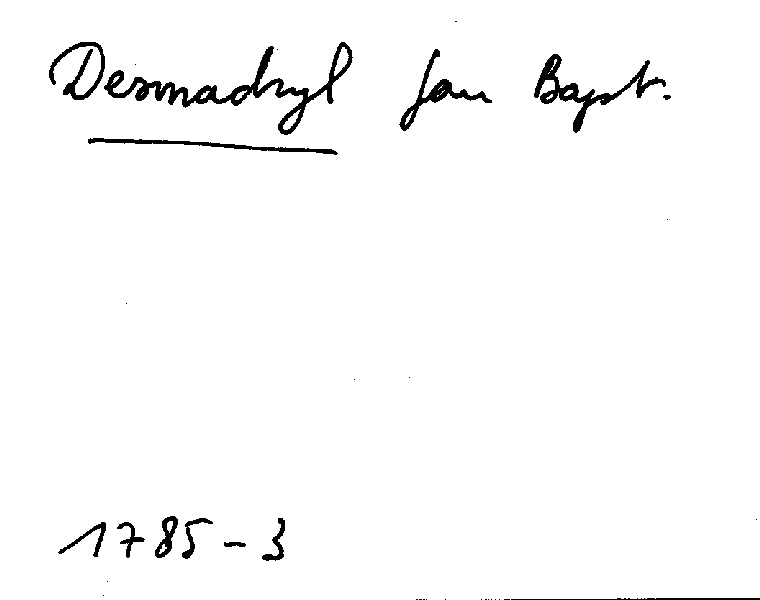 Desmadryl Jan Bapt.
1785-3